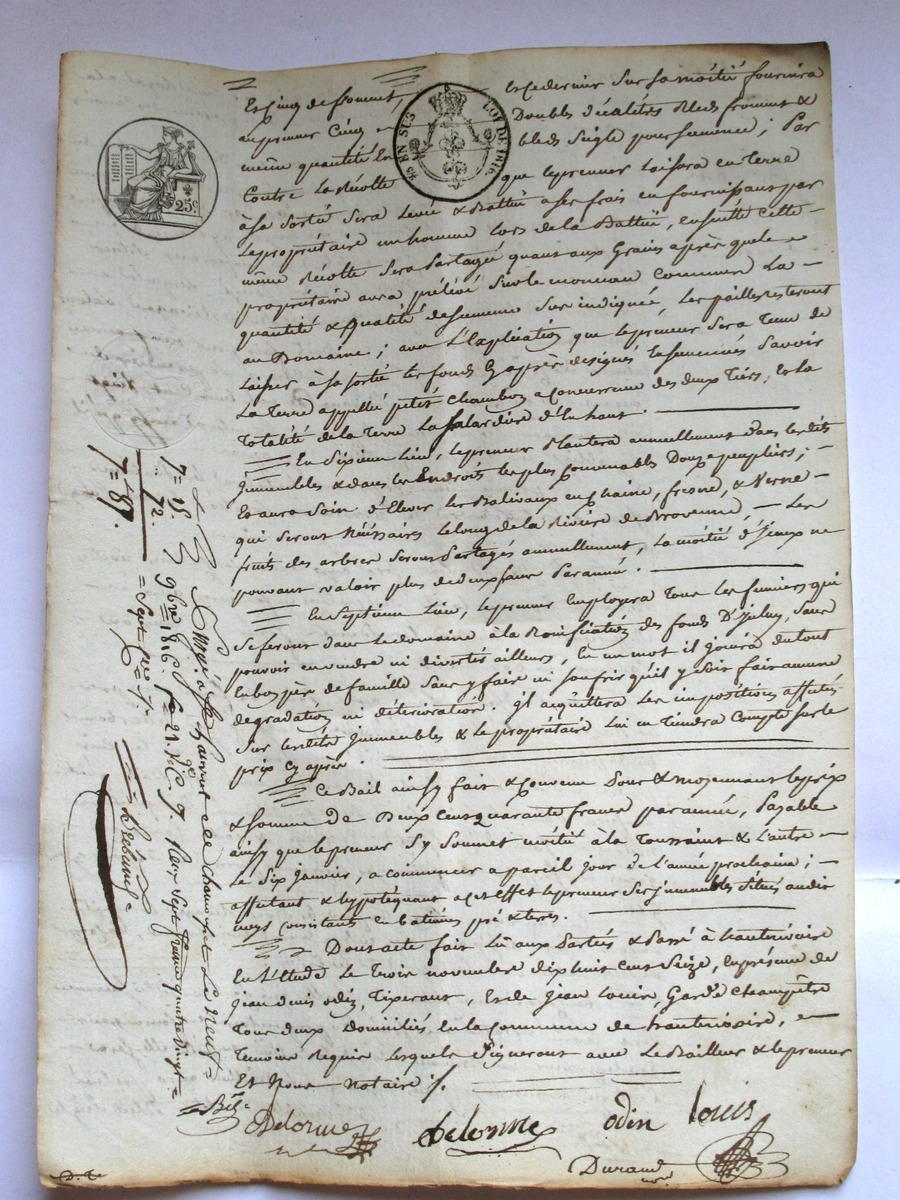 Et Cinq de froment, Et ce dernier Sur sa moitié fournira
au preneur Cinq Doubles Décalitres Bled froment &
bled Seigle pour semence ; Par
même quantité En
Contre La Récolte que le preneur Laissera en Terre
à sa Sortie Sera Levée & Battue a ses frais en fournissant par
Le propriétaire un homme Lors de La Battue, ensuitte Cette
même Récolte Sera Partagée quant aux Grains après que le
propriétaire aura prélévé Sur le monceau commun La
quantité & Qualité de semence Sus indiquée, Les pailles resteront
au Domaine ; avec L'Explication que le preneur Sera Tenu de
Laisser à sa sortie les fonds Cy après désignés Ensemencés Savoir
La Terre appellée petit Chambon a Concurrence des deux Tiers, Et La
Totalité de la Terre La d'En haut.
En Sixieme Lieu, Le preneur Plantera annuellement dans les dits
Immeubles & dans les Endroits les plus Convenables Douze peupliers,
Et aura Soin d'Elever les Balivaux en Chaine, fresne, & Verne
qui Seront Néssaires Le long de la Riviere de . Les
fruits des arbres Seront Partagés annuellement, La moitié d'Iceux ne
pouvant valoir plus de deux francs Par année.
En Septieme Lieu, Le preneur Employera Tous Les fumiers qui
Se feront dans Le domaine à la Bonification des fonds D'Iceluy, Sans
pouvoir en vendre ni divertir ailleurs, En un mot il Jouira du tout
En bon père de famille Sans y faire ni Soufrir qu'il y Soit fait aucune
dégradation ni détérioration. Il aquittera Les impositions affectés
Sur les dits Immeubles & Le propriétaire Lui en Tiendra Compte Sur le
prix Cy après.
Ce Bail ainsy fait & Convenu Pour & moyennant le prix
& Somme De Deux Cent quarante francs par année, Payable
ainsy que le preneur S'y Soumet moitié à la Toussaint & L'autre
Le Six Janvier, a commencer a pareil Jour de L'année prochaine ;
affectant & hypotéquant a cet Effet le preneur Ses Immeubles Situés audit
consistants En batiments pré & terres.
Dont acte fait Lu aux Parties & Passé à hauterivoire
En L'Etude Le Trois novembre dix huit Cent Seize, En présence de
Jean Denis odin, Tixerant, Et de Jean Louis, Garde Champêtre
Tous deux Domiciliés En la Commune de hauterivoire,
Temoins Requis Lesquels Signeront avec Le Bailleur & le preneur
Et Nous Notaire ./.
Delorme Delorme odin louis
Durand
25c
95 EN SUS LOI DE 1816
7 = 15.
72
7 = 87.
9bre 1816.